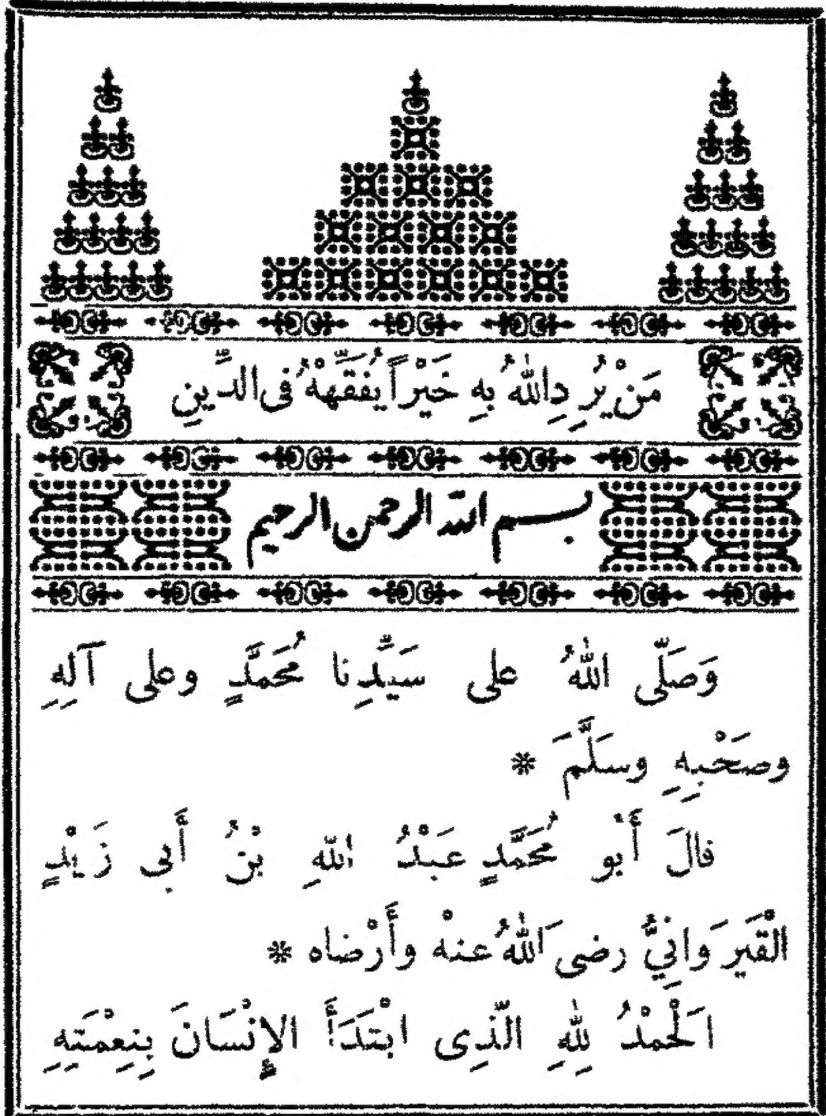 مَنْ يُرِدِ اللهُ بِهِ خَيْراً يُفَقِّهْهُ فى الدِّينِ
بسم الله الرحمن الرحيم
وَصَلّى اللهُ على سَيِّدِنا مُحَمَّدٍ وعلى آلِهِ
وصَحْبِهِ وسَلَّمَ *
قالَ أَبو مُحَمَّدٍ عَبْدُ اللهِ بْنُ أَبى زَيْدٍ
الْقَيرَوانِيُّ رضى اللهُ عنهْ وأَرْضاه *
اَلْحَمْدُ لِلهِ الّذِى ابْتَدَأَ الإِنْسَانَ بِنِعْمَتِهِ